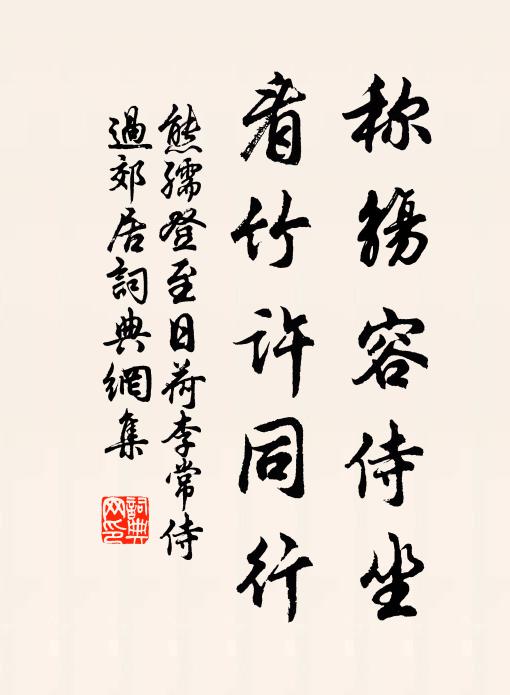 称觞容侍坐
看竹许同行
熊孺登至日荷李常侍
過郊居詞典網集
詞典
网印